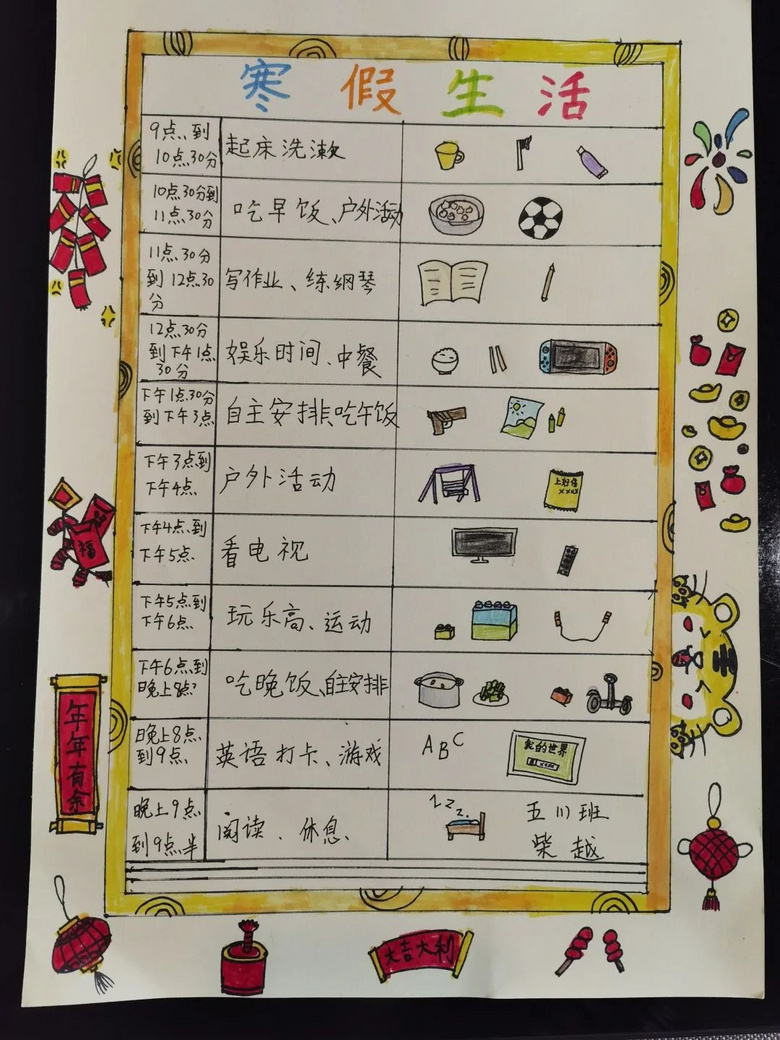 寒假生活
9点、到
10点30分
起床洗漱
10点30分到
11点、30分
吃早饭、户外活动
11点、30分
到12点30
分
写作业、练钢琴
12点、30分
到下午1点
30分
娱乐时间、中餐
下午1点、30分
到下午3点
自主安排、吃午饭
下午3点到
下午4点
户外活动
上好佳
xxxx
下午4点、到
下午5点
看电视
下午5点到
下午6点
玩乐高、运动
下午6点到
晚上8点
吃晚饭、自主安排
晚上8点
到9点
英语打卡、游戏
ABC
我的世界
晚上9点
到9点半
阅读、休息
zzz
五川班
柴越
福
年年有余
大吉大利